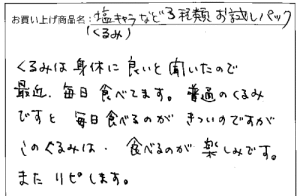 お買い上げ商品名：塩キャラなど3種類お試しパック
(くるみ)
くるみは身体に良いと聞いたので
最近、毎日食べてます。普通のくるみ
ですと毎日食べるのがきついのですが
このくるみは、食べるのが楽しみです。
またリピします。